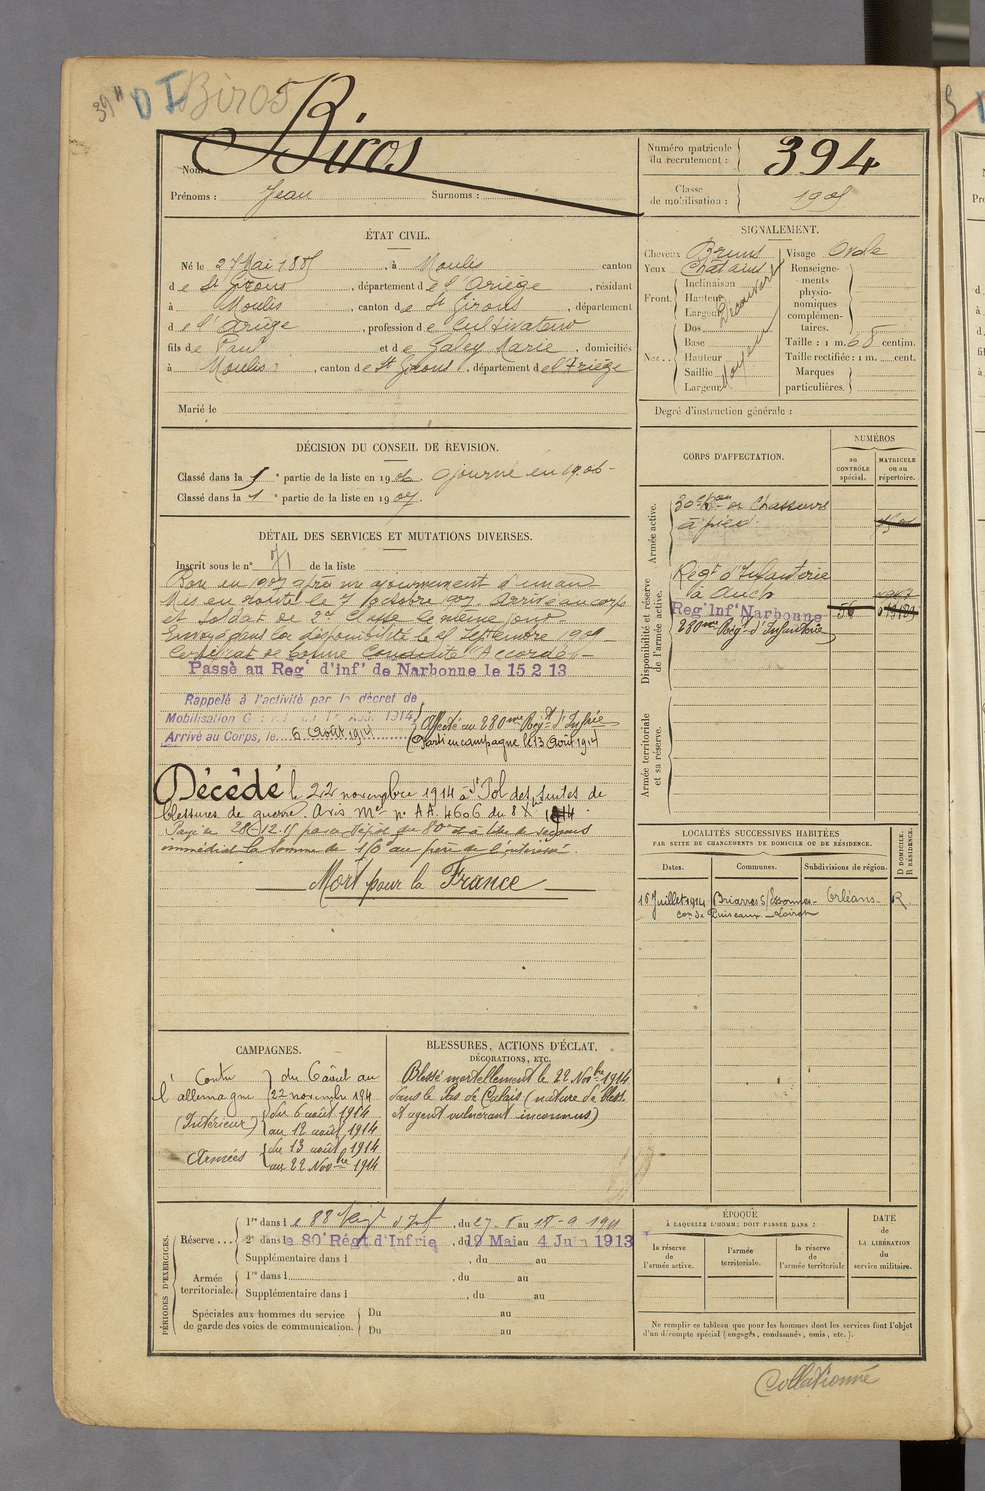 39" D I Biros
Nom : Biros
Prénoms : Jean Surnoms :
Numéro matricule du recrutement : 394
Classe de mobilisation : 1905
ÉTAT CIVIL.
Né le 27 Mai 1885, à Moulis canton
de St Girons, département de l'Ariège, résidant
à Moulis, canton de St Girons, département
de l'Ariège, profession de Cultivateur
fils de Paul et de Galey Marie, domiciliés
à Moulis, canton de St Girons, département de l'Ariège
Marié le
SIGNALEMENT.
Cheveux Bruns Visage Ovale
Yeux Chatains
Front. Inclinaison Hauteur Largeur Découvert
Nez. Dos Base Hauteur Saillie Largeur Moyen
Renseignements physionomiques complémentaires.
Taille : 1 m. 68 centim.
Taille rectifiée : 1 m. cent.
Marques particulières.
Degré d'instruction générale :
DÉCISION DU CONSEIL DE REVISION.
Classé dans la 5e partie de la liste en 1906. ajourné en 1906-
Classé dans la 1e partie de la liste en 1907.
DÉTAIL DES SERVICES ET MUTATIONS DIVERSES.
Inscrit sous le n° 71 de la liste
Bon en 1907 après un ajournement d'un an
Mis en route le 7 Octobre 1907. Arrivé au corps
et Soldat de 2e Classe le même jour.
Envoyé dans la disponibilité le Septembre 1909
Certificat de bonne Conduite "Accordé"-
Passé au Reg' d'inf'e de Narbonne le 15 2 13
Rappelé à l'activité par le décret de
Mobilisation Générale du 1er Août 1914
Arrivé au Corps, le 6 Août 1914
Affecté au 280me Régt d'Infrie
Parti en campagne le 13 Août 1914
Décédé le 22 novembre 1914 à St Pol des suites de
blessures de guerre. Avis Mel n° AA. 4606 du 8 Xbre 1914.
Payé le 28-12-15 par le dépôt du 80e à titre de secours
immédiat la somme de 150 au père de l'intéressé.
Mort pour la France
CORPS D'AFFECTATION.
NUMÉROS
au CONTRÔLE spécial.
MATRICULE ou au répertoire.
Armée active.
30e Bon de Chasseurs
à pied.
Disponibilité et réserve de l'armée active.
Régt d'Infanterie
à Auch
Reg' Inf'e Narbonne 56
280me Régt d'Infanterie
Armée territoriale et sa réserve.
LOCALITÉS SUCCESSIVES HABITÉES
PAR SUITE DE CHANGEMENTS DE DOMICILE OU DE RÉSIDENCE.
Dates. Communes. Subdivisions de région. D DOMICILE. R RÉSIDENCE.
16 Juillet 1914 Briarres S/Essonnes- Orléans- R.
con de Puiseaux - Loiret
CAMPAGNES.
Contre l'allemagne du 6 août au
22 novembre 1914
(Intérieur) du 6 août 1914
au 12 août 1914
Armées du 13 août 1914
au 22 Novbre 1914
BLESSURES, ACTIONS D'ÉCLAT,
DÉCORATIONS, ETC.
Blessé mortellement le 22 Novbre 1914
dans le Pas de Calais (nature de bless.
et agent vulnérant inconnus)
PÉRIODES D'EXERCICES.
Réserve... 1re dans le 88 Régt d'Inf, du 27-8 au 18-9 1911
2e dans le 80e Régt d'Infrie, du 19 Mai au 4 Juin 1913
Supplémentaire dans l , du au
Armée territoriale. 1re dans l , du au
Supplémentaire dans l , du au
Spéciales aux hommes du service de garde des voies de communication. Du au
Du au
ÉPOQUE
À LAQUELLE L'HOMME DOIT PASSER DANS :
la réserve de l'armée active.
l'armée territoriale.
la réserve de l'armée territoriale
DATE de LA LIBÉRATION du service militaire.
Ne remplir ce tableau que pour les hommes dont les services font l'objet
d'un décompte spécial (engagés, condamnés, omis, etc.).
Collationné